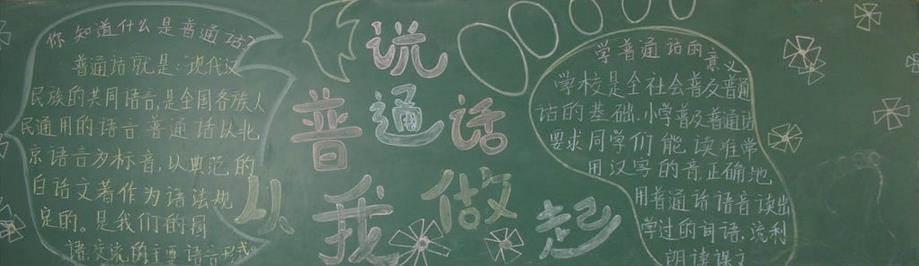 你知道什么是普通话?
普通话就是:现代汉
民族的共同语言,是全国各族人
民通用的语言 普通话以北
京语音为标音,以典范的
白话文著作为语法规
定的。是我们的
交流的主要语言形式。
说
普通话
从我做起
学普通话的意义
学校是全社会普及普通
话的基础.小学普及普通话
要求同学们能读准常
用汉字的音正确地
用普通话语音读出
学过的词语,流利
朗读课文